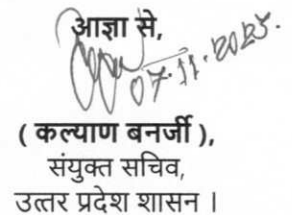 आज्ञा से,
07.11.2025.
( कल्याण बनर्जी ),
संयुक्त सचिव,
उत्तर प्रदेश शासन ।